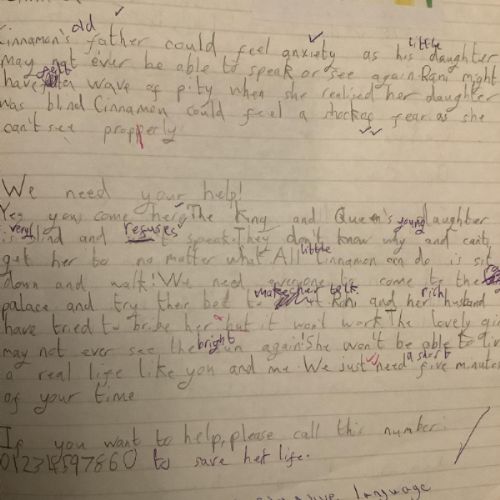 Cinnamon's old father could feel anxiety as his little daughter
may not ever be able to speak or see again. Rani might
have felt wave of pity when she realised her daughter
was blind. Cinnamon could feel a shock of fear as she
can't see propperly
We need your help!
Yes you, come here. The King and Queen's young daughter
is very blind and refuses speak. They don't know why and can't
get her to no matter what. All little Cinnamon can do is sit
down and walk! We need everyone to come to the
palace and try ther best to make her talk. Rani and her rich husband
have tried to bribe her but it won't work. The lovely girl
may not ever see the bright sun again! She won't be able to live
a real life like you and me. We just need a short five minutes
of your time
If you want to help, please call this number:
to save her life.
language